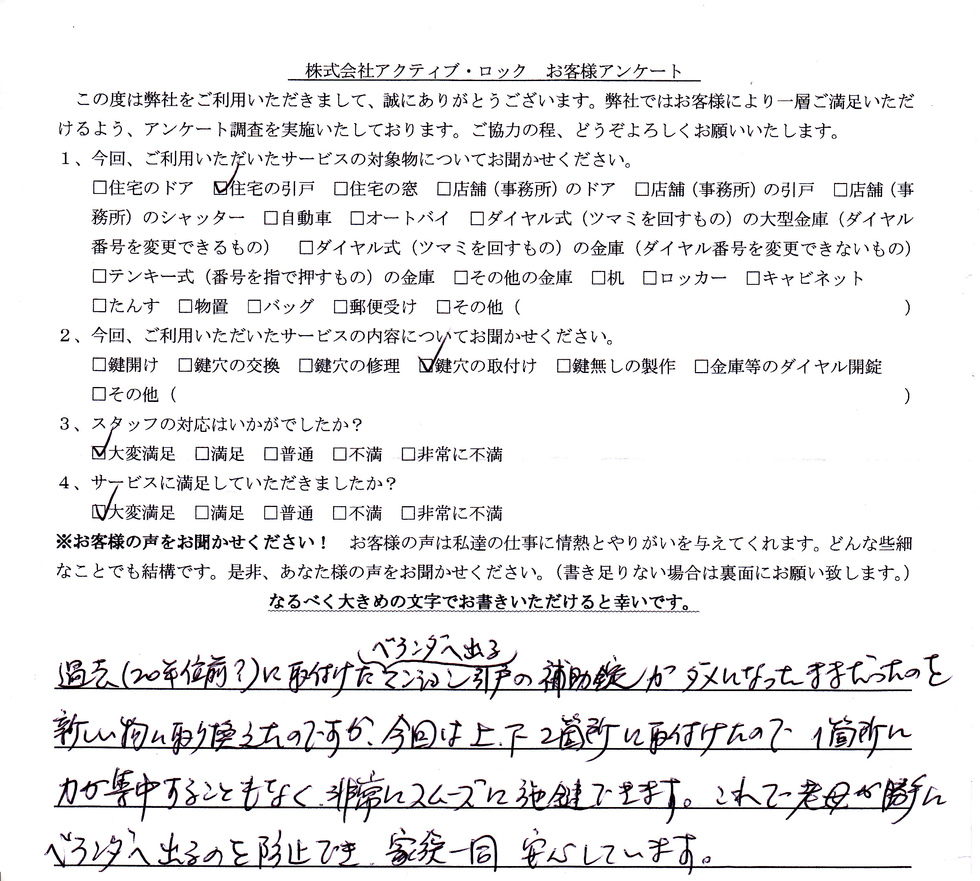 株式会社アクティブ・ロック　お客様アンケート
この度は弊社をご利用いただきまして、誠にありがとうございます。弊社ではお客様により一層ご満足いただ
けるよう、アンケート調査を実施いたしております。ご協力の程、どうぞよろしくお願いいたします。
１、今回、ご利用いただいたサービスの対象物についてお聞かせください。
□住宅のドア　☑住宅の引戸　□住宅の窓　□店舗（事務所）のドア　□店舗（事務所）の引戸　□店舗（事
務所）のシャッター　□自動車　□オートバイ　□ダイヤル式（ツマミを回すもの）の大型金庫（ダイヤル
番号を変更できるもの）　□ダイヤル式（ツマミを回すもの）の金庫（ダイヤル番号を変更できないもの）
□テンキー式（番号を指で押すもの）の金庫　□その他の金庫　□机　□ロッカー　□キャビネット
□たんす　□物置　□バッグ　□郵便受け　□その他（　　　　　　　　　　　　　　　　　　）
２、今回、ご利用いただいたサービスの内容についてお聞かせください。
□鍵開け　□鍵穴の交換　□鍵穴の修理　☑鍵穴の取付け　□鍵無しの製作　□金庫等のダイヤル開錠
□その他（　　　　　　　　　　　　　　　　　　）
３、スタッフの対応はいかがでしたか？
☑大変満足　□満足　□普通　□不満　□非常に不満
４、サービスに満足していただきましたか？
☑大変満足　□満足　□普通　□不満　□非常に不満
※お客様の声をお聞かせください！　お客様の声は私達の仕事に情熱とやりがいを与えてくれます。どんな些細
なことでも結構です。是非、あなた様の声をお聞かせください。（書き足りない場合は裏面にお願い致します。）
なるべく大きめの文字でお書きいただけると幸いです。
ベランダへ出る
過去（20年位前？）に取付けたマンション引戸の補助錠がダメになったままだったのを
新しい物に取り換えたのですが、今回は上、下2箇所に取付けたので1箇所に
力が集中することもなく非常にスムーズに施錠できます。これで老母が勝手に
ベランダへ出るのを防止でき、家族一同安心しています。